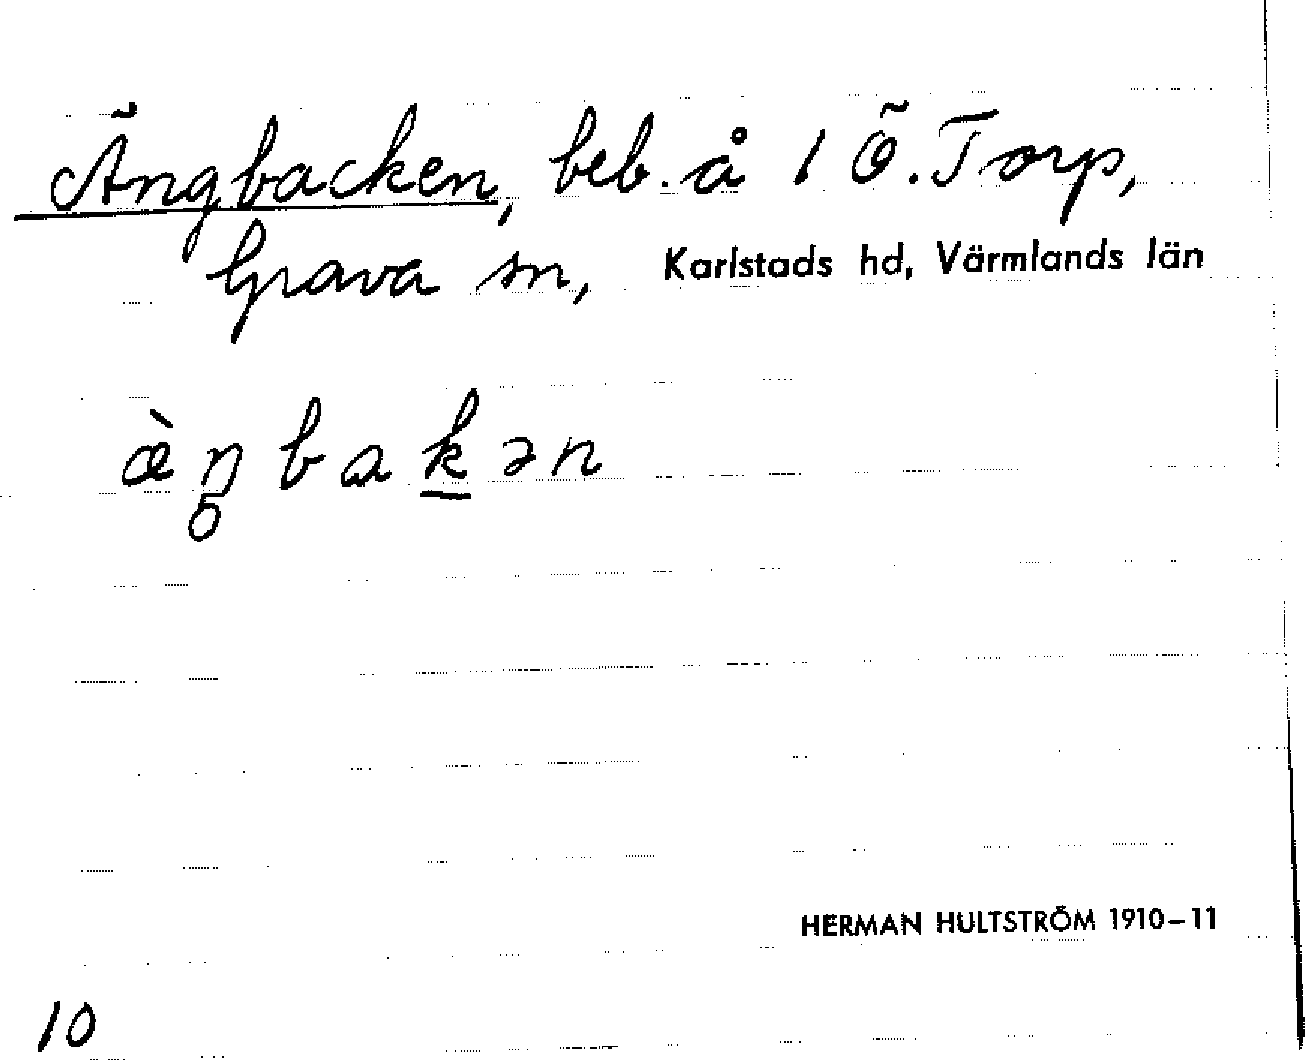 Ängbacken, beb. å 1 Ö. Torp,
Grava sn, Karlstads hd, Värmlands län
æ̀ŋbak̲ən
HERMAN HULTSTRÖM 1910–11
10